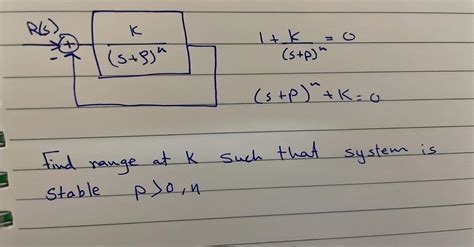 R(s)
+
-
K
(s+p)^n
1 + K/(s+p)^n = 0
(s+p)^n + K = 0
Find range of K such that system is
stable p>0, n